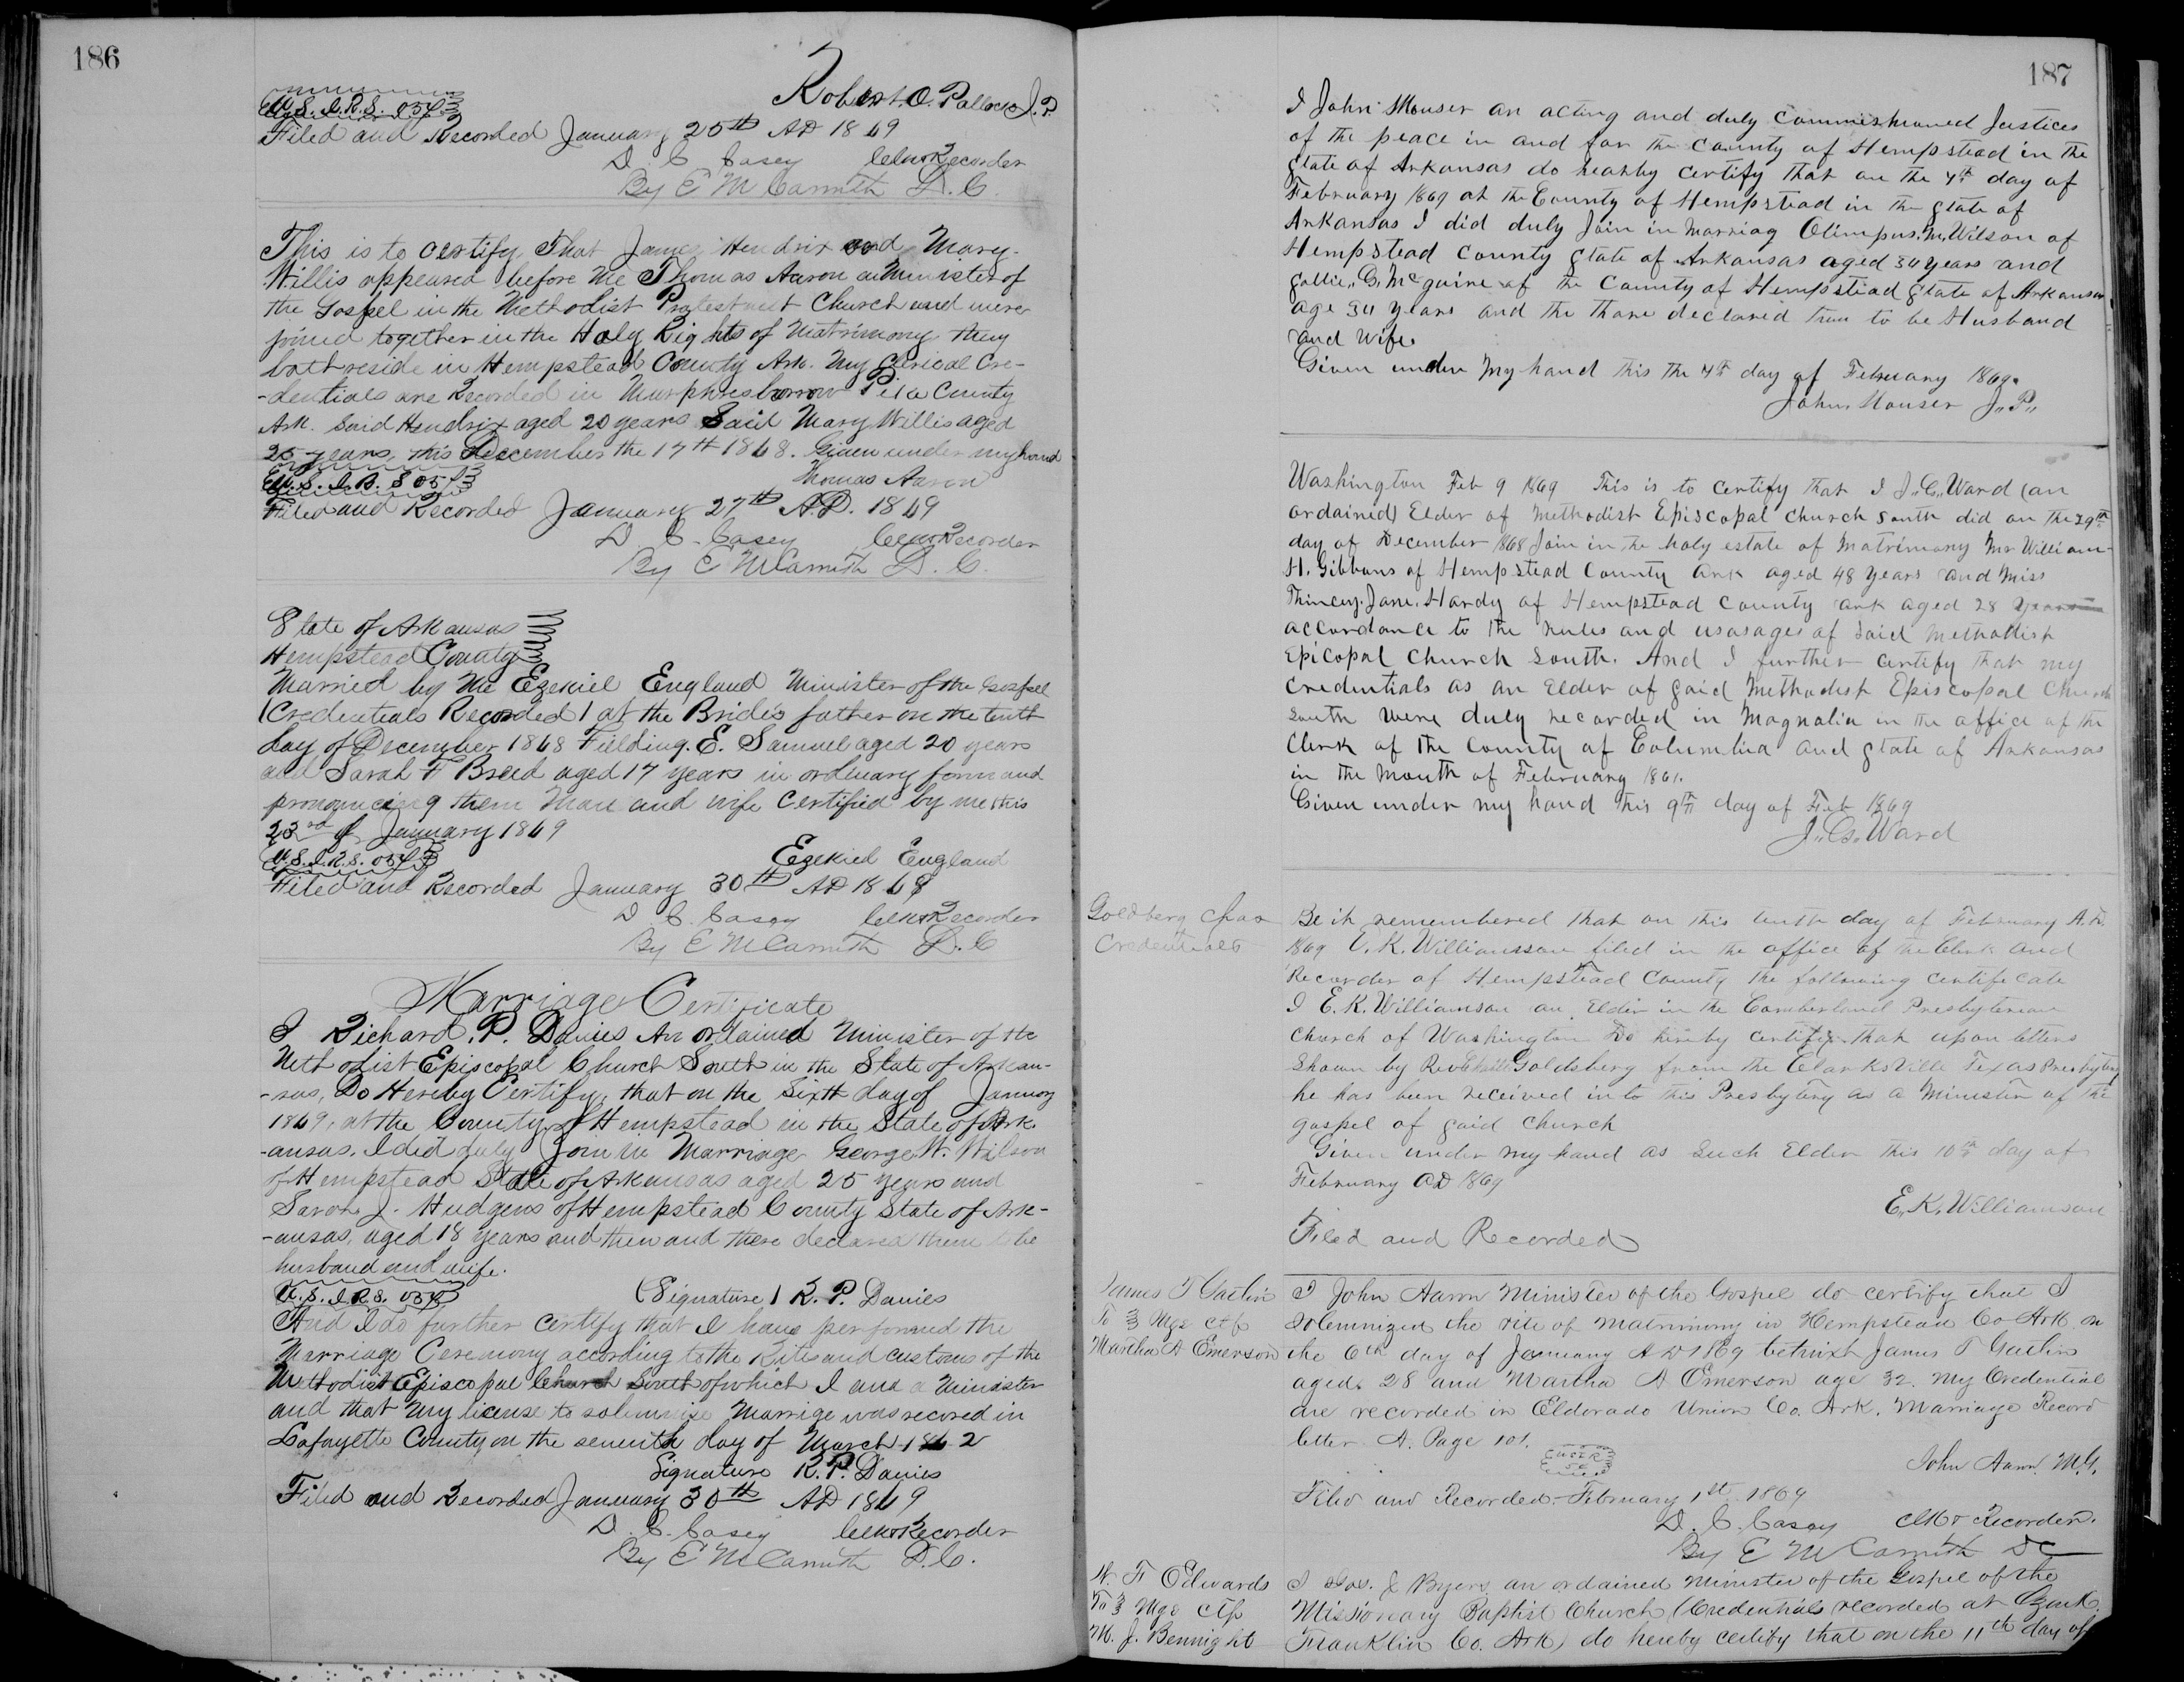 186
Robert. O. Pallock J.P.
U.S.I.R.S. 05¢
Filed and Recorded January 25th AD 1869
D. C. Casey Clk & Recorder
By E M Carruth D.C.
This is to certify That James Hendrix and Mary
Willis appeared before me Thomas Aaron a Minister of
the Gospel in the Methodist Protestant Church and were
joined together in the Holy Rights of Matrimony they
both reside in Hempstead County Ark. My Clerical Cre-
-dentials are Recorded in Murphresborrow Pike County
Ark. Said Hendrix aged 20 years Said Mary Willis aged
25 years, this December the 17th 1868. Given under my hand
U.S.I.R.S 05¢ Thomas Aaron
Filed and Recorded January 27th A.D. 1869
D. C. Casey Clk & Recorder
By E M Carruth D.C.
State of Arkansas
Hempstead County
Married by me Ezekiel England Minister of the Gospel
(Credentials Recorded) at the Bride's father on the tenth
day of December 1868 Fielding. E. Samuel aged 20 years
and Sarah F Breed aged 17 years in ordinary form and
pronouncing them Man and wife Certified by me this
23rd of January 1869
U.S.I.R.S. 05¢ Ezekiel England
Filed and Recorded January 30th AD 1869
D C. Casey Clk & Recorder
By E M Carruth D.C
Marriage Certificate
I Richard. P. Davies An ordained Minister of the
Methodist Episcopal Church South in the State of Arkan-
-sas, Do Hereby Certify, that on the Sixth day of January
1869, at the County of Hempstead in the State of Ark-
-ansas, I did duly Join in Marriage George W. Wilson
of Hempstead State of Arkansas aged 25 years and
Sarah J. Hudgens of Hempstead County State of Ark-
-ansas, aged 18 years and then and there declared them to be
husband and wife.
U.S.I.R.S. 05¢ (Signature) R.P. Davies
And I do further Certify that I have performed the
Marriage Ceremony according to the Rites and customs of the
Methodist Episcopal Church South of which I and a Minister
and that my license to solemnize Marrige was recored in
Lafayette County on the seventh day of March 1862
Signature R.P. Davies
Filed and Recorded January 30th AD 1869
D. C. Casey Clk & Recorder
By E M Carruth D.C.
187
I John Mouser an acting and duly Commishioned Justices
of the peace in and for the County of Hempstead in the
State of Arkansas do hearby certify that on the 4th day of
February 1869 at the County of Hempstead in the State of
Arkansas I did duly Join in Marriag Olimpus. M. Wilson of
Hempstead County State of Arkansas aged 34 years and
Sallie, G. McGuire of the County of Hempstead State of Arkansas
age 34 years and the thare declared them to be Husband
and Wife.
Given under My hand this the 4th day of February 1869.
John Mouser J.P.
Washington Feb 9 1869 This is to certify that I J.C. Ward (an
ordained) Elder of Methodist Episcopal Church South did on the 29th
day of December 1868 Join in the holy estate of Matrimony Mr William
H. Gibbons of Hempstead County Ark aged 48 years and Miss
Jane. Hardy of Hempstead County Ark aged 28 years
accordance to the rules and usasages of said Methodist
Epicopal Church South. And I further certify that my
Credentials as an Elder of said Methodist Episcopal Church
South were duly recorded in Magnolia in the office of the
Clerk of the County of Columbia and State of Arkansas
in the Month of February 1861.
Given under my hand this 9th day of Feb 1869
J.C. Ward
Goldberg Chas
Credentials
Be it remembered that on this tenth day of February A.D.
1869 E. K. Williamson filed in the office of the Clerk and
Recorder of Hempstead County the following certificate
I E. K. Williamson an Elder in the Comberland Presbyterian
Church of Washington Do hereby certify that upon letters
Shown by Rev Goldsberg from the Clarksville Texas Presbytery
he has been received into this Presbytery as a Minister of the
gospel of said Church
Given under my hand as such Elder this 10th day of
February AD 1869
E. K. Williamson
Filed and Recorded
James T Gatlin
To Mge ctf
Martha A Emerson
I John Aaron Minister of the Gospel do certify that I
solemnized the rite of matrimony in Hempstead Co Ark on
the 6th day of January A D 1869 betwixt James T Gatlin
aged 28 and Martha A Emerson age 32. My Credential
are recorded in Eldorado Union Co. Ark. Marriage Record
letter A. Page 101.
USIR 5c John Aaron M.G.
Filed and Recorded February 1st 1869
D. C. Casey Clk & Recorder.
By E M Carruth DC
W. F Edwards
To Mge ctf
M. J. Bennight
I J Byers an ordained Minister of the Gospel of the
Missionary Baptist Church (Credentials recorded at Ozark
Franklin Co. Ark) do hereby certify that on the 11th day of